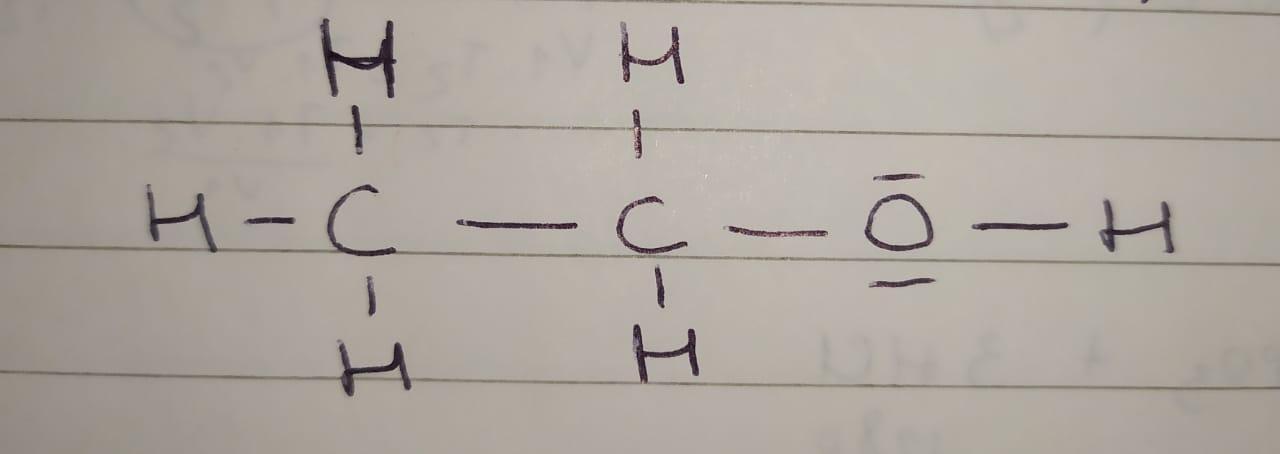 H H
H - C — C — O — H
H H